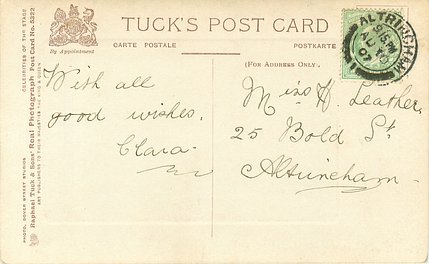 TUCK'S POST CARD
CARTE POSTALE
POSTKARTE
By Appointment
(FOR ADDRESS ONLY.)
CELEBRITIES OF THE STAGE
Raphael Tuck & Sons' Real Photograph Post Card No. 5322
ART PUBLISHERS TO THEIR MAJESTIES THE KING & QUEEN
PHOTO. DOVER STREET STUDIOS
ALTRINCHAM
With all
good wishes,
Clara
Miss H. Leather
25 Bold St
Altrincham